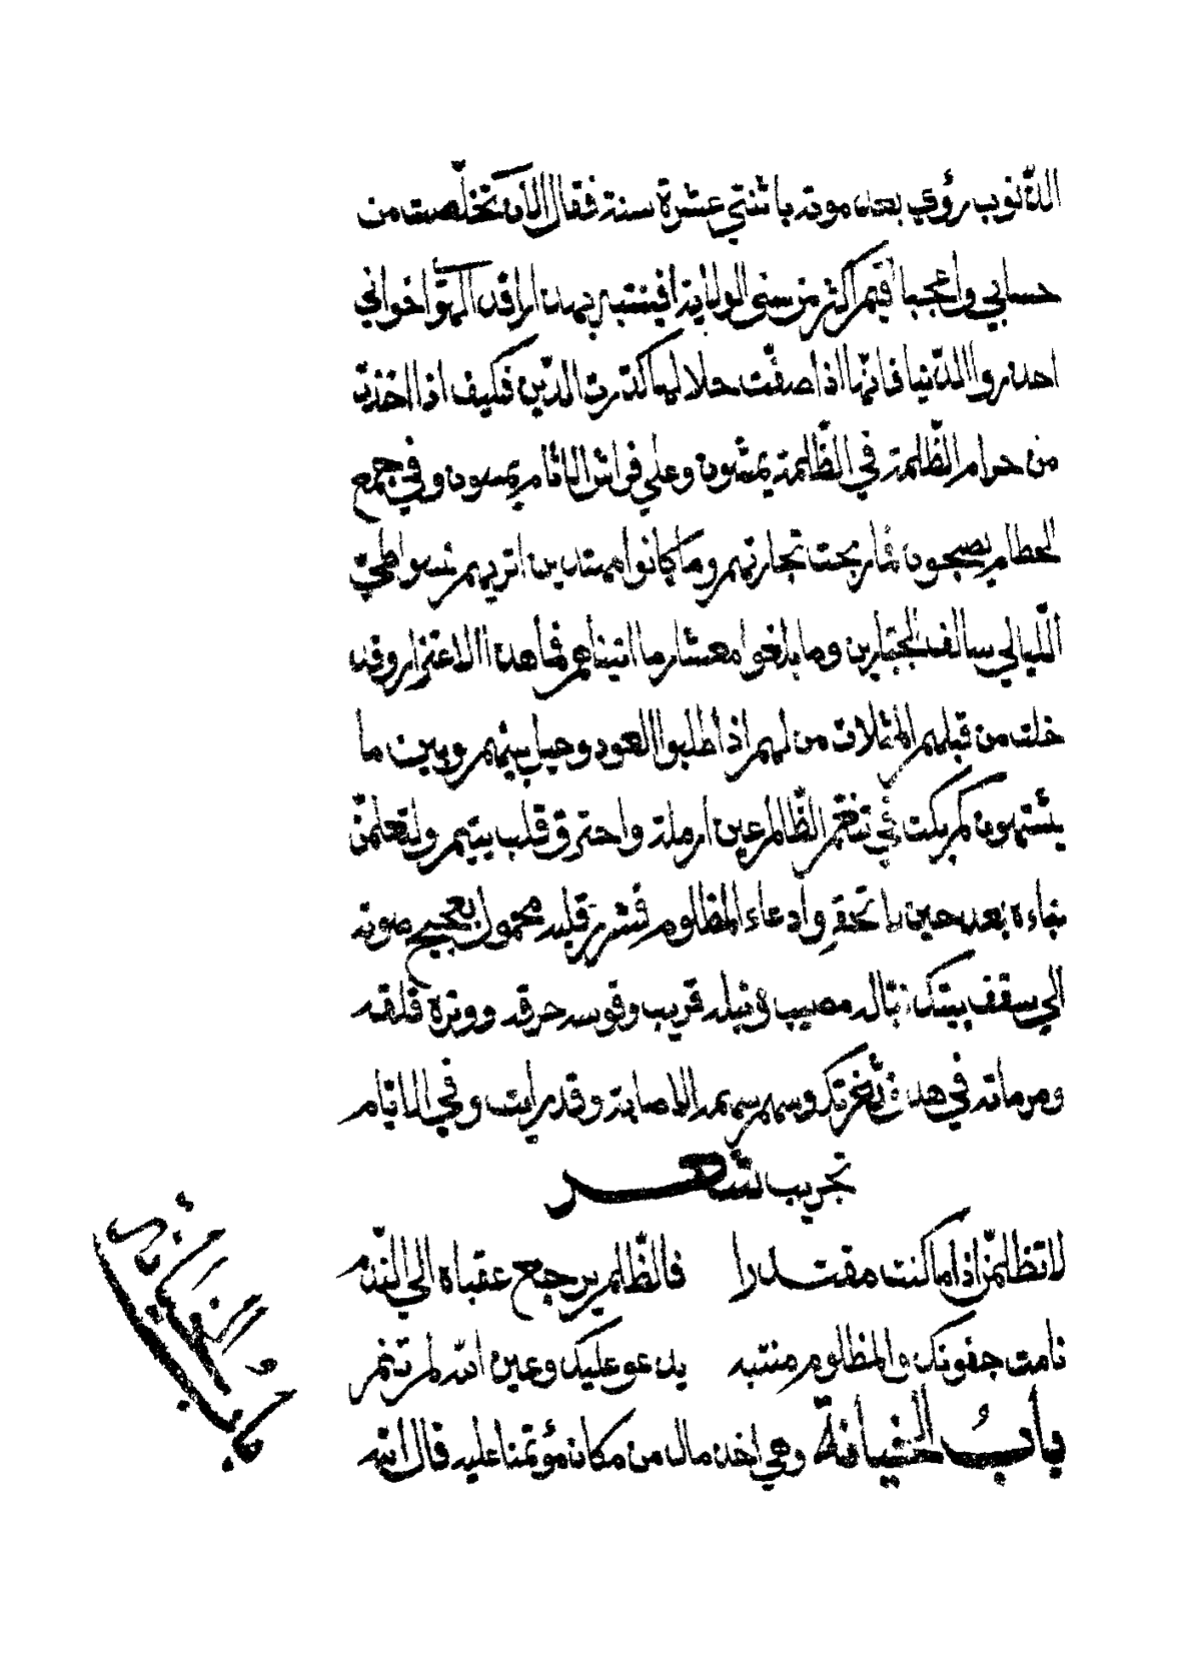 الذّنوب رؤي بعد موته باثنتي عشرة سنة فقال الآن تخلّصت من
حسابي واعجبا اقيم اكثر من سني الولاية افينتبه بهذا الراقد الهوا اخواني
احذروا الدّنيا فانّها اذا صفّت حلالها كدّرت الدّين فكيف اذا اخذت
من حرام الظّلمة في الظّلمة يمشون وعلي فراش الاثام يمسون وفي جمع
الحطام يصبحون فما ربحت تجارتهم وما كانوا مهتدين اتريهم نسوا طيّ
اللّيالي سالف الجبّارين وما بلغوا معشار ما اتيناهم فما هذا الاغترار وقد
خلت من قبلهم المثلات من لهم اذا طلبوا العود وحيل بينهم وبين ما
يشتهون كم بكت في تنعّم الظّالم عين ارملة واحترق قلب يتيم ولتعلمنّ
نباءه بعد حين ما تحقر وادعاء المظلوم فشرر قلبه محمول بعجيج صوته
الي سقف بيتك نباله مصيب ونبله قريب وقوسه حرقه ووتره قلقه
ومرماته في هدف ثغرتك وسهم سهمه الاصابة وقد رايت وفي الايّام
تجريب شعر
لا تظلمنّ اذا ما كنت مقتدرا فالظّالم يرجع عقباه الي النّدم
نامت جفونك والمظلوم منتبه يدعو عليك وعين الله لم تنم
باب الخيانة وهي اخذ مال من مكانه مؤتمنا عليه قال الله